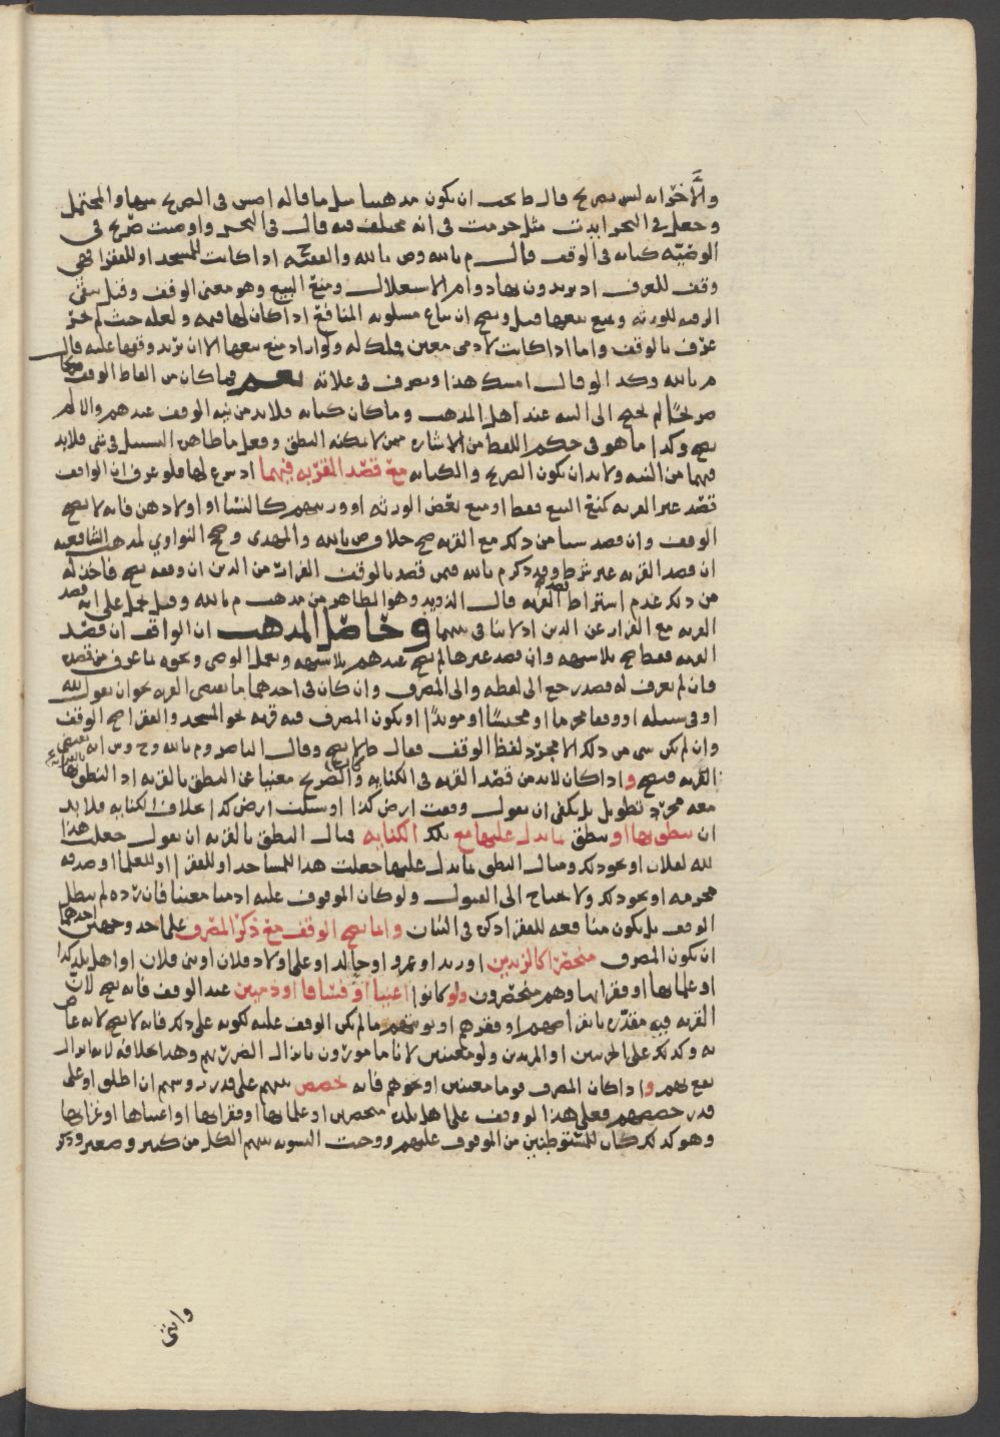 والآخر انه ليس بصريح قال ط يجب ان يكون مذهبنا مثل ما قاله اذ ليس في الصريح منها والمحتمل
وجعل في البحر ابدت مثل حرمت في انه مختلف فيه قال في البحر واوصيت صريح في
الوصية كنايه في الوقف قال م بالله وص بالله والفقيه ح اذا كانت للمسجد او للفقرا فهي
وقف للعرف اذ يريدون بها دوام الاستغلال ومنع البيع وهو معنى الوقف وقيل تبقى
الرقبه للورثه ويمنع بيعها قيل ويصح ان تباع مسلوبه المنافع اذا كان لها قيمه ولعله حيث لم يجر
عرف بالوقف واما اذا كانت لادمي معين فملك له ولو اراد منع بيعها الا ان يريد وقفها عليه قال
م بالله وكذا لو قال امسك هذا وتصرف في غلاته نعم فما كان من الفاظ الوقف
صريحًا لم يحتج الى النيه عند اهل المذهب وما كان كنايه فلا بد من نيه الوقف عندهم والا لم
يصح وكذا ما هو في حكم اللفظ من الاشاره ممن لا يمكنه النطق وفعل ما ظاهره التسبيل في شي فلا بد
فيهما من النيه ولا بد ان يكون الصريح والكنايه مع قصد القربه فيهما اذ شرع لها فلو عرف ان الواقف
قصد غير القربه كمنع البيع فقط او منع بعض الورثه او ورثتهم كالنسا او اولادهن فانه لا يصح
الوقف وان قصد شيا من ذلك مع القربه صح خلاف ص بالله والمهدي وصحح النواوي لمذهب الشافعيه
ان قصد القربه غير شرط وقد ذكر م بالله فيمن قصد بالوقف الفرار من الدين ان وقفه يصح فاخذ له
من ذلك عدم اشتراط قصد القربه قال الذويد وهو الظاهر من مذهب م بالله وقيل يحمل على انه قصد
القربه مع الفرار عن الدين اذ لا تنافي بينهما وحاصل المذهب ان الواقف ان قصد
القربه فقط صح بلا شبهه وان قصد غيرها لم يصح عندهم بلا شبهه ويعمل الوصي ونحوه بما عرف من قصده
فان لم يعرف له قصد رجع الى لفظه والى المصرف وان كان في احدهما ما يقتضي القربه نحو ان يقول لله
او في سبيله او وقفا محرما او محبسًا او موبدًا او يكون المصرف فيه قربه نحو المسجد والفقرا صح الوقف
وان لم يكن شي من ذلك الا مجرد لفظ الوقف فقال ط لا يصح وقال الناصر وم بالله وح وس انه يقتضي
القربه فيصح واذا كان لا بد من قصد القربه في الكنايه والصريح مغنيا عن النطق بالقربه اذ النطق بها
معه مجرد تطويل بل يكفي ان يقول وقفت ارض كذا او سبلت ارض كذا بخلاف الكنايه فلا بد
ان ينطق بها او ينطق بما يدل عليها مع تلك الكنايه مثال النطق بالقربه ان يقول جعلت هذا
لله لفلان او نحو ذلك ومثال النطق بما يدل عليها جعلت هذا للمساجد او للفقرا او للعلما او صدقه
محرمه او نحو ذلك ولا يحتاج الى القبول ولو كان الموقوف عليه ادميا معينا فان رده لم يبطل
الوقف بل يكون منافعه للفقرا ذكره في البيان وانما يصح الوقف مع ذكر المصرف على احد وجهين احدهما
ان يكون المصرف منحصرًا كالزيدين او زيد او عمرو او خالد او على اولاد فلان او بني فلان او اهل بلد كذا
او علمايها او فقرايها وهم منحصرون ولو كانوا اغنيا او فساقا او ذميين عند الوقف فانه يصح لان
القربه فيه مقدره بانقراضهم او فقرهم او توبتهم ما لم يكن الوقف عليه لكونه على ذلك فانه لا يصح لانه عاص
به وكذلك على الحربيين او المرتدين ولو معينين لانا مامورون بانزال الضرر بهم وهذا بخلافه لانه انزال
نفع بهم واذا كان المصرف قوما معينين او نحوهم فانه يحصص بينهم على قدر روسهم ان اطلق او على
قدر حصصهم فعلى هذا لو وقف على اهل بلد منحصرين او علمايها او فقرايها او اغنياها او غزابها
وهو كذلك كان للمستوطنين من الموقوف عليهم ووجبت التسويه بينهم الكل من كبير وصغير وذكر
وانثى